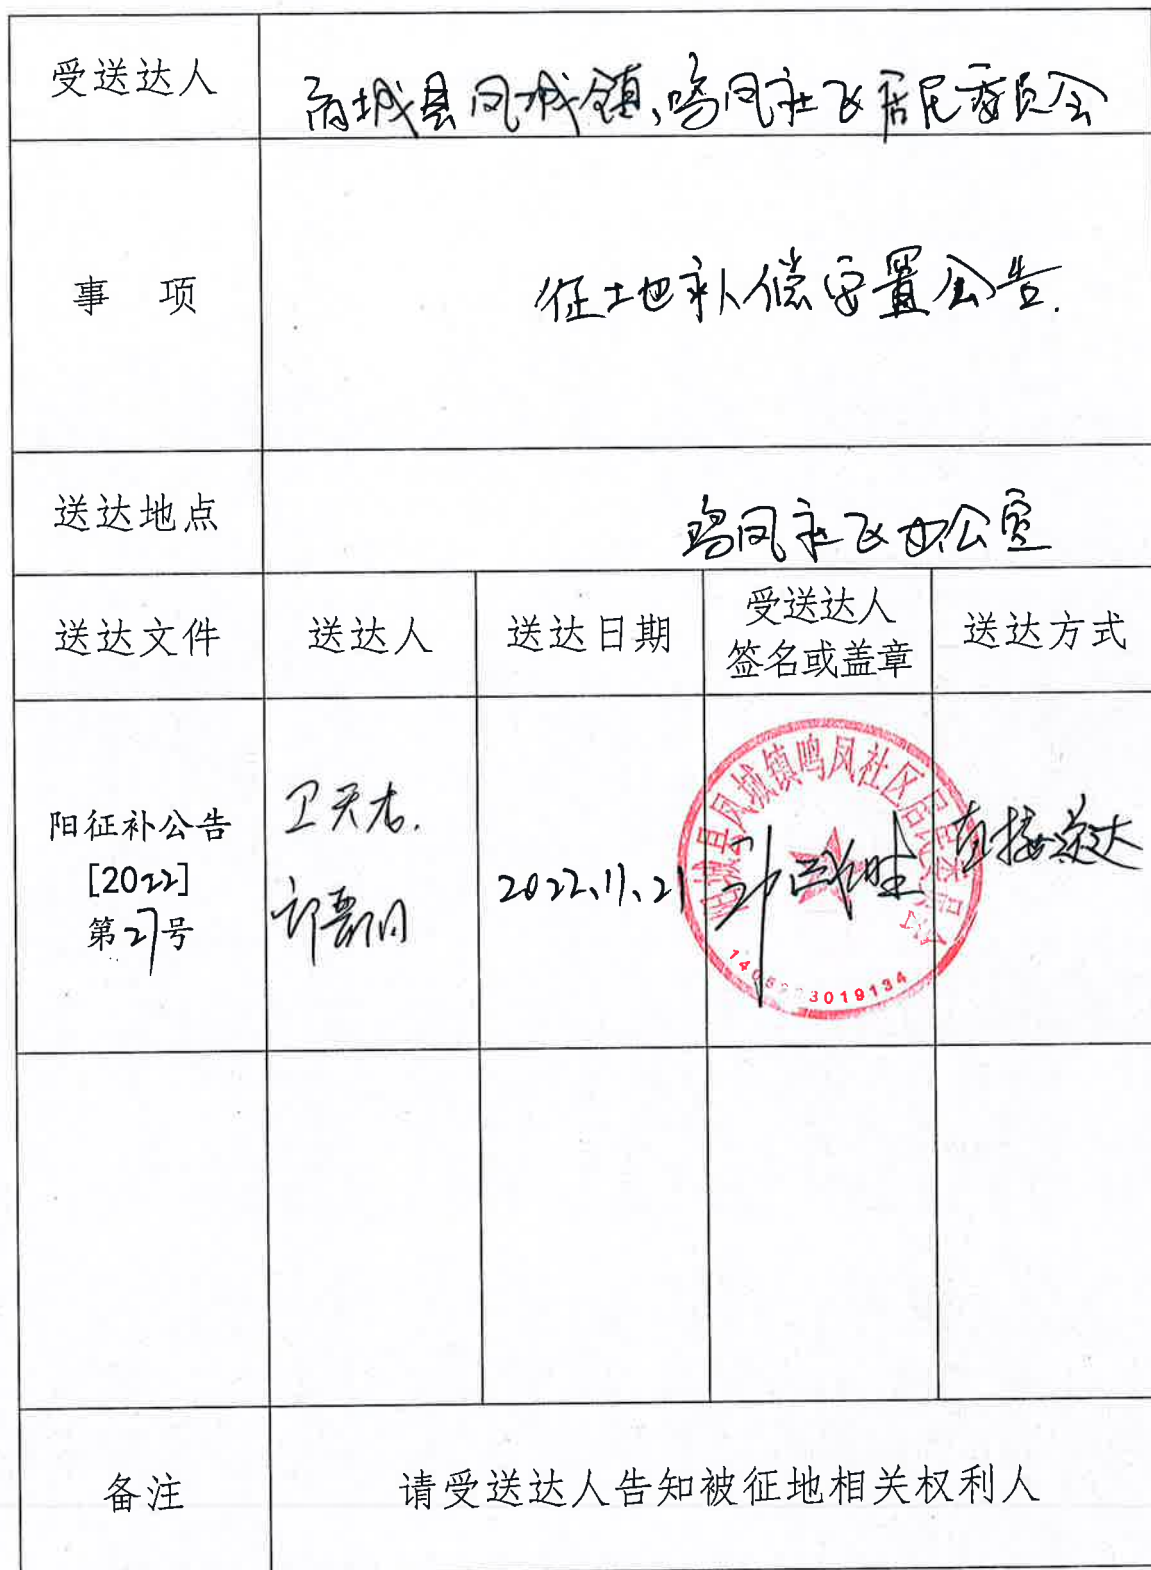 受送达人
阳城县凤城镇鸣凤社区居民委员会
事 项
征土地补偿安置公告.
送达地点
鸣凤社区办公室
送达文件
送达人
送达日期
受送达人
签名或盖章
送达方式
阳征补公告
[2022]
第27号
卫天杰.
2022、11、21
阳城县凤城镇鸣凤社区居民委员会
1405223019134
直接送达
备注
请受送达人告知被征地相关权利人